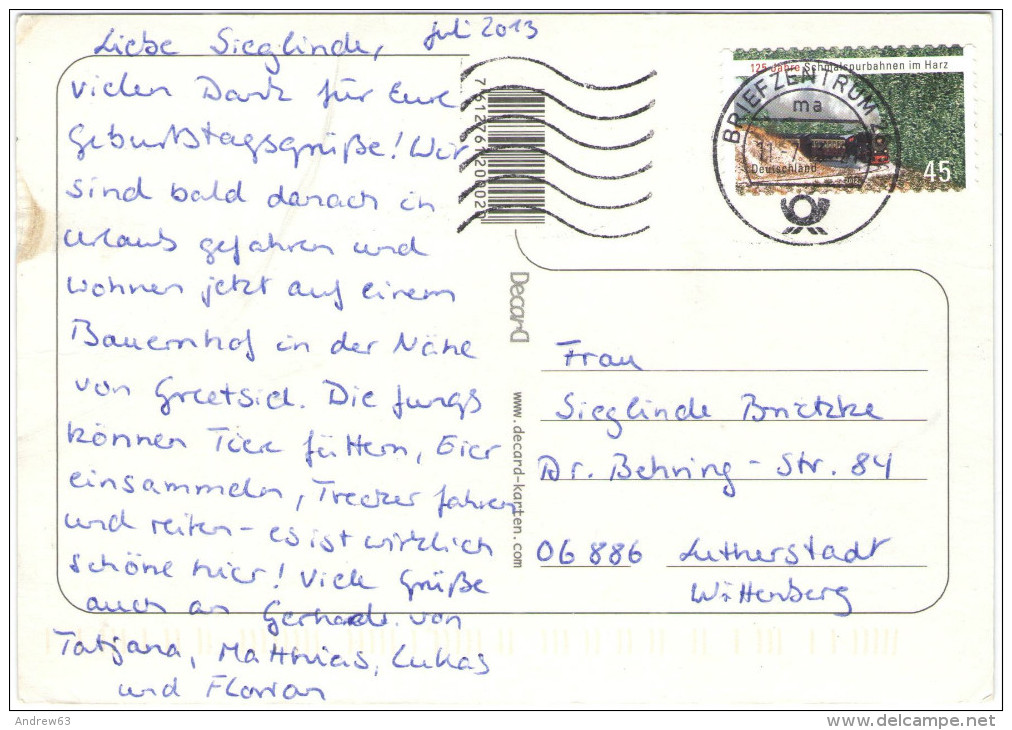 Juli 2013
Liebe Sieglinde,
vielen Dank für Eure
Geburtstagsgrüße! Wir
sind bald danach in
Urlaub gefahren und
wohnen jetzt auf einem
Bauernhof in der Nähe
von Greetsiel. Die Jungs
können Tiere füttern, Eier
einsammeln, Trecker fahren
und reiten - es ist wirklich
schöne hier! Viele Grüße
auch an Gerhard. von
Tatjana, Matthias, Lukas
und Florian
7612761200020
Decard
www.decard-karten.com
125 Jahre Schmalspurbahnen im Harz
Deutschland
45
BRIEFZENTRUM
ma
11.-7.
Frau
Sieglinde
Dr. Behring-Str. 84
06886 Lutherstadt
Wittenberg
Andrew63
delcampe.net